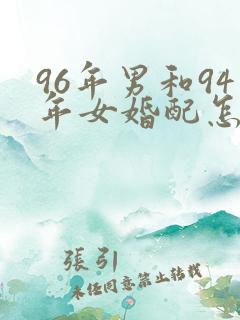 96年男和94
年女婚配怎
張引
未经同意禁止转载